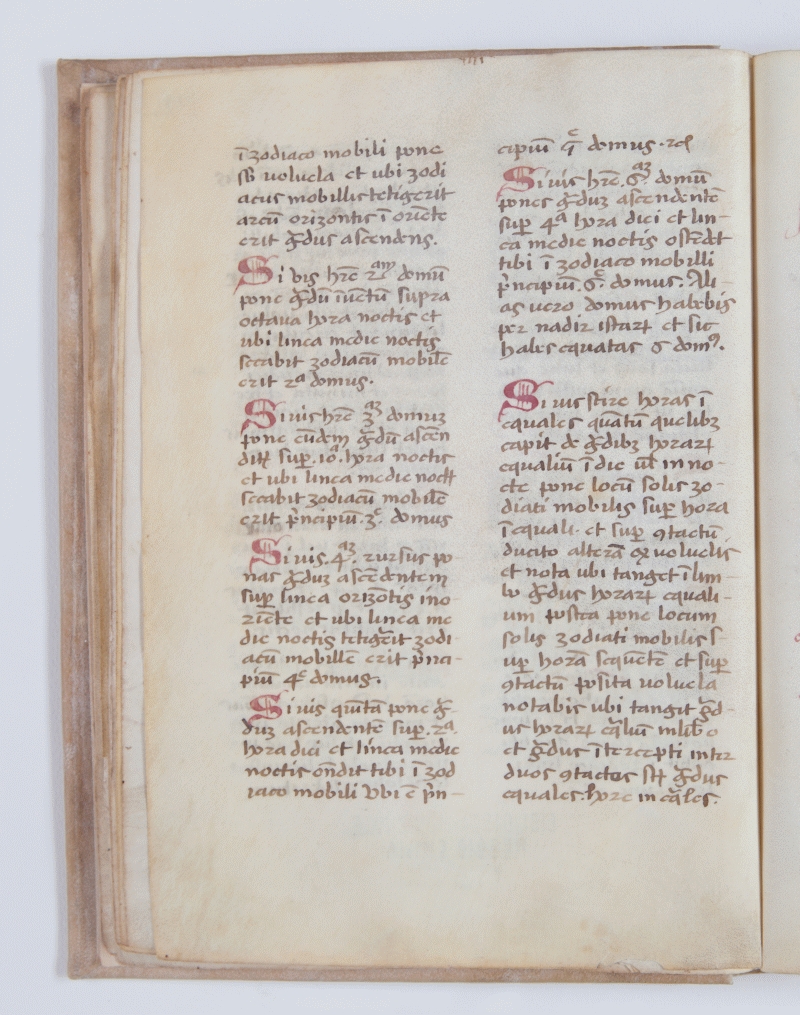 ī zodiaco mobili pone
sb̄ uoluela et ubi zodi
acus mobillis tetigerit
arcū orizontis ī oriēte
erit ḡdus ascendens.
Si vis hr̄e 2am domū
pone ḡdū īuētū supra
octaua hora noctis et
ubi linea medie noctis
secabit zodiacū mobilē
erit 2a domus.
Si uis hr̄e 3az domuz
pone eūdem ḡdū ascen
sup̄. 10a. hora noctis
et ubi linea medie noctꝭ
secabit zodiacū mobilē
erit p̄ncipiū. 3e. domus
Si uis. 4az. rursus po
nas ḡduz ascēdentem
sup̄ linea orizōtis ino
riēte et ubi linea me
die noctis tetiḡit zodi-
acū mobillē erit p̄nci-
piū 4e domus.
Si uis quītā pone ḡ-
duz ascendentē sup̄. 2a.
hora diei et linea medie
noctis on̄dit tibi ī zod
iaco mobili Vbi ē p̄n-
cipiū domus.
Si uis hr̄e. 6az domū
pones ḡduz ascendentē
sup̄ 4a hora diei et lin-
ea medie noctis ostēdet
tibi ī zodiaco mobilli
p̄ncipiū. 6e. domus. Ali-
as uero domus habebis
per nadir istaꝝ et sic
habes equatas domꝰ.
Si uis scire horas ī
equales quātū quelibꝫ
capit de ḡdibꝫ horaꝝ
equaliū ī die ul̄ in no-
cte pone locū solis zo-
diati mobilis sup̄ hora
īequali. et sup̄ ꝯtactū
ducito alterā uoluelis
et nota ubi tanget ī lim-
bo ḡdus horaꝝ equali-
um postea pone locum
solis zodiati mobilis s-
up̄ horā sequētē et sup̄
ꝯtactū posita uoluela
notabis ubi tangit ḡd-
us horaꝝ
et ḡdus ītercepti inter
duos ꝯtactos ḡdus
equales. hore